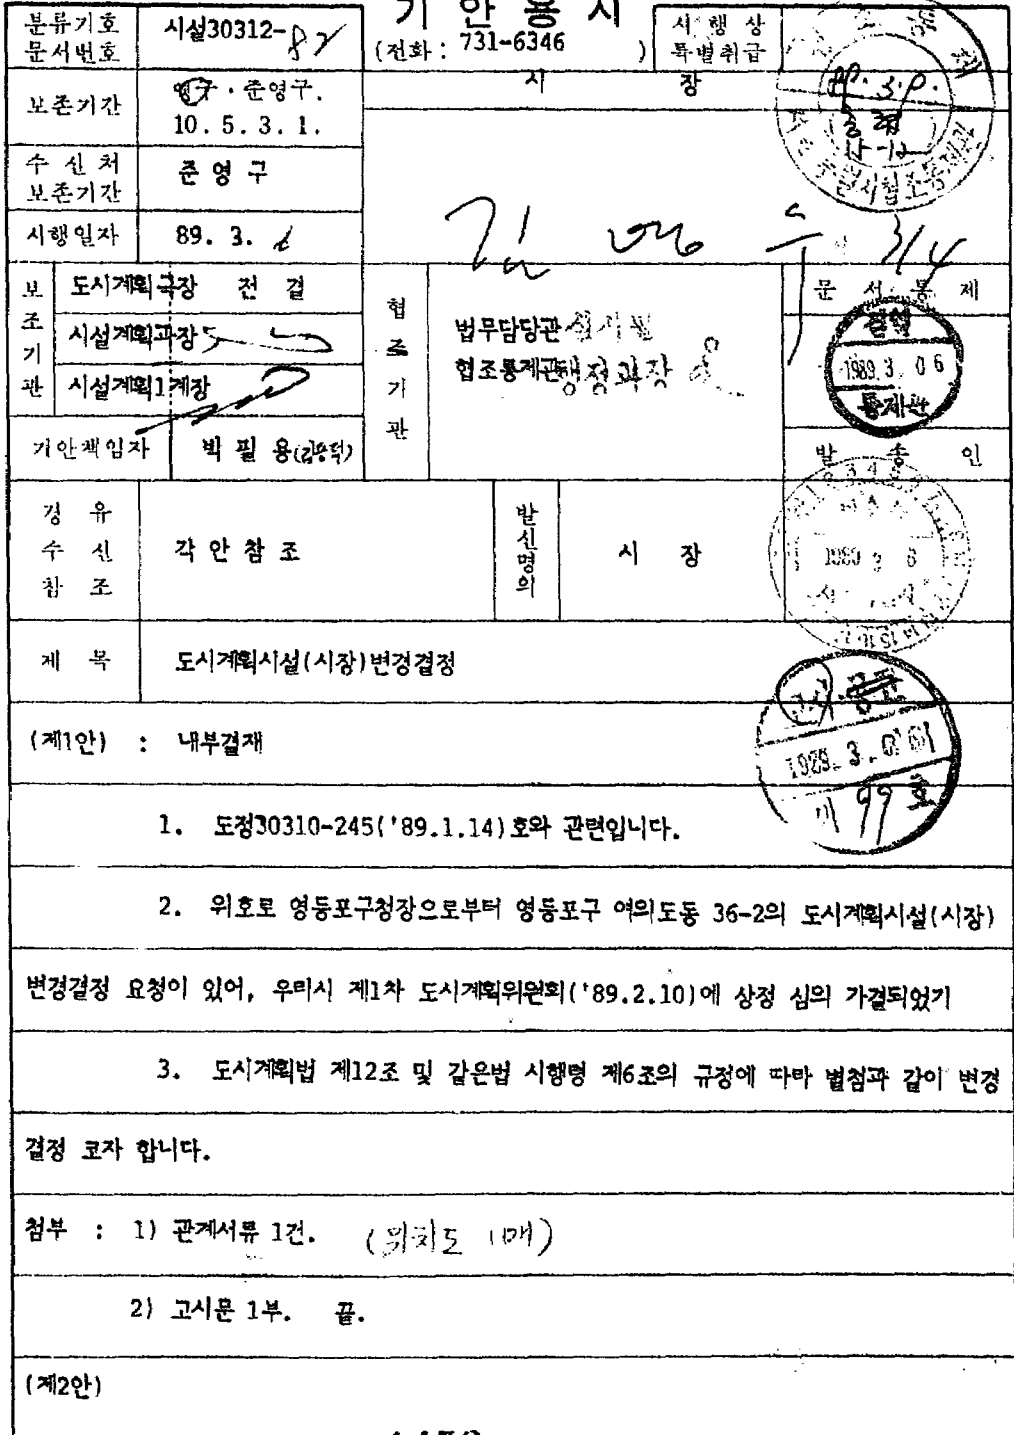 기안용지
분류기호
문서번호
시설30312-82
(전화: 731-6346 )
시행상
특별취급
보존기간
영구·준영구.
10. 5. 3. 1.
시 장
수신처
보존기간
준영구
시행일자
89. 3. 6
3/4
보조기관
도시계획국장 전결
시설계획과장
시설계획1계장
협조기관
법무담당관
협조통제관 행정과장
문서통제
1989. 3. 06
통제관
기안책임자
박필용
발송인
경유
수신
참조
각안참조
발신명의
시 장
1989 3 6
제 목
도시계획시설(시장)변경결정
(제1안) : 내부결재
1989. 3. 06
99호
1. 도정30310-245('89.1.14)호와 관련입니다.
2. 위호로 영등포구청장으로부터 영등포구 여의도동 36-2의 도시계획시설(시장)
변경결정 요청이 있어, 우리시 제1차 도시계획위원회('89.2.10)에 상정 심의 가결되었기
3. 도시계획법 제12조 및 같은법 시행령 제6조의 규정에 따라 별첨과 같이 변경
결정 코자 합니다.
첨부 : 1) 관계서류 1건. (위치도 1매)
2) 고시문 1부. 끝.
(제2안)